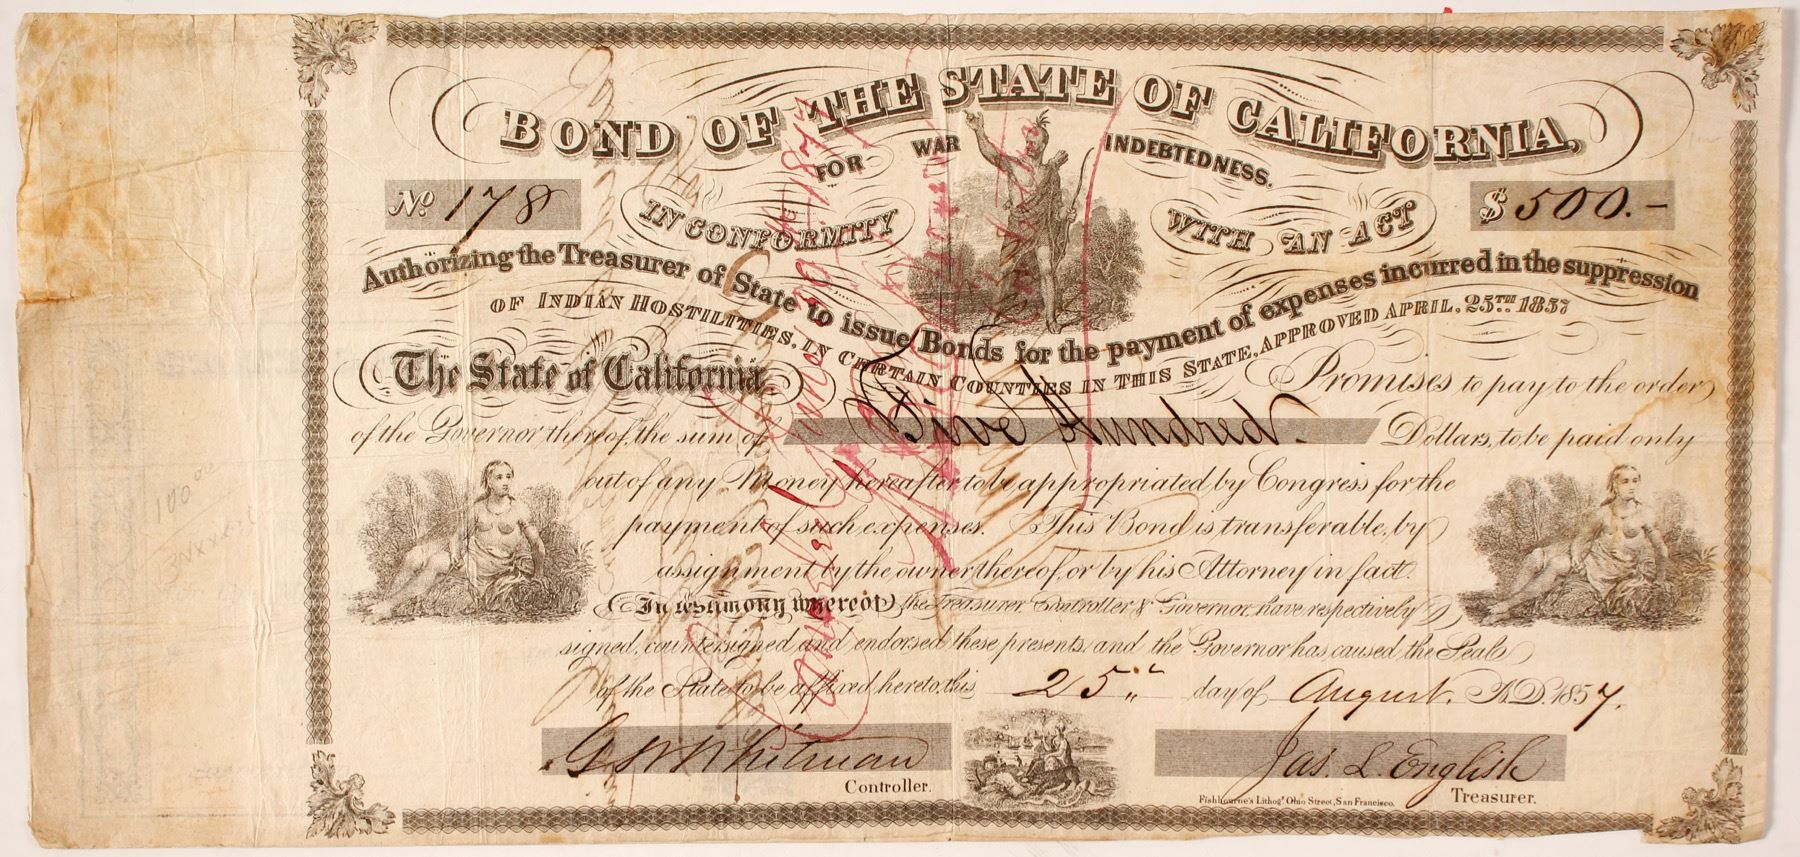 BOND OF THE STATE OF CALIFORNIA,
FOR WAR INDEBTEDNESS.
No. 178
$ 500.-
IN CONFORMITY WITH AN ACT
Authorizing the Treasurer of State to issue Bonds for the payment of expenses incurred in the suppression
OF INDIAN HOSTILITIES, IN CERTAIN COUNTIES IN THIS STATE, APPROVED APRIL, 25TH 1857
The State of California, Promises to pay to the order
of the Governor thereof, the sum of Five Hundred Dollars, to be paid only
out of any Money hereafter to be appropriated by Congress for the
payment of such expenses. This Bond is transferable, by
assignment by the owner thereof, or by his Attorney in fact.
In testimony whereof, the Treasurer, Controller & Governor, have respectively
signed, countersigned and endorsed these presents, and the Governor has caused the Seal
of the State to be affixed hereto, this 25th day of August A.D. 1857.
G. W. Whitman
Controller.
Jas. L. English
Treasurer.
Fishbourne's Lithogy. Ohio Street, San Francisco.
100 00